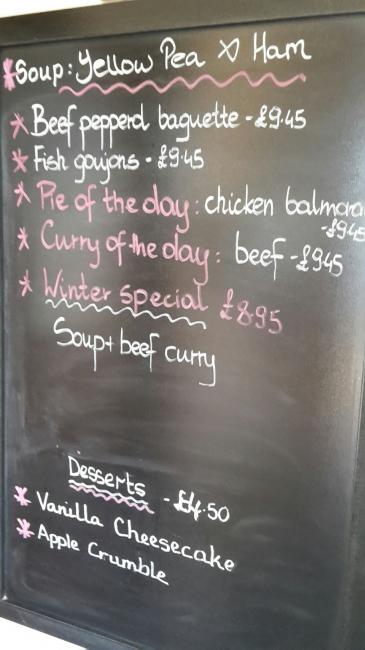 Soup: Yellow Pea & Ham
Beef pepperd baguette - £9.45
Fish goujons - £9.45
Pie of the day: chicken balmora
- £9.45
Curry of the day: beef - £945
Winter special £8.95
Soup + beef curry
Desserts - £4.50
Vanilla Cheesecake
Apple Crumble